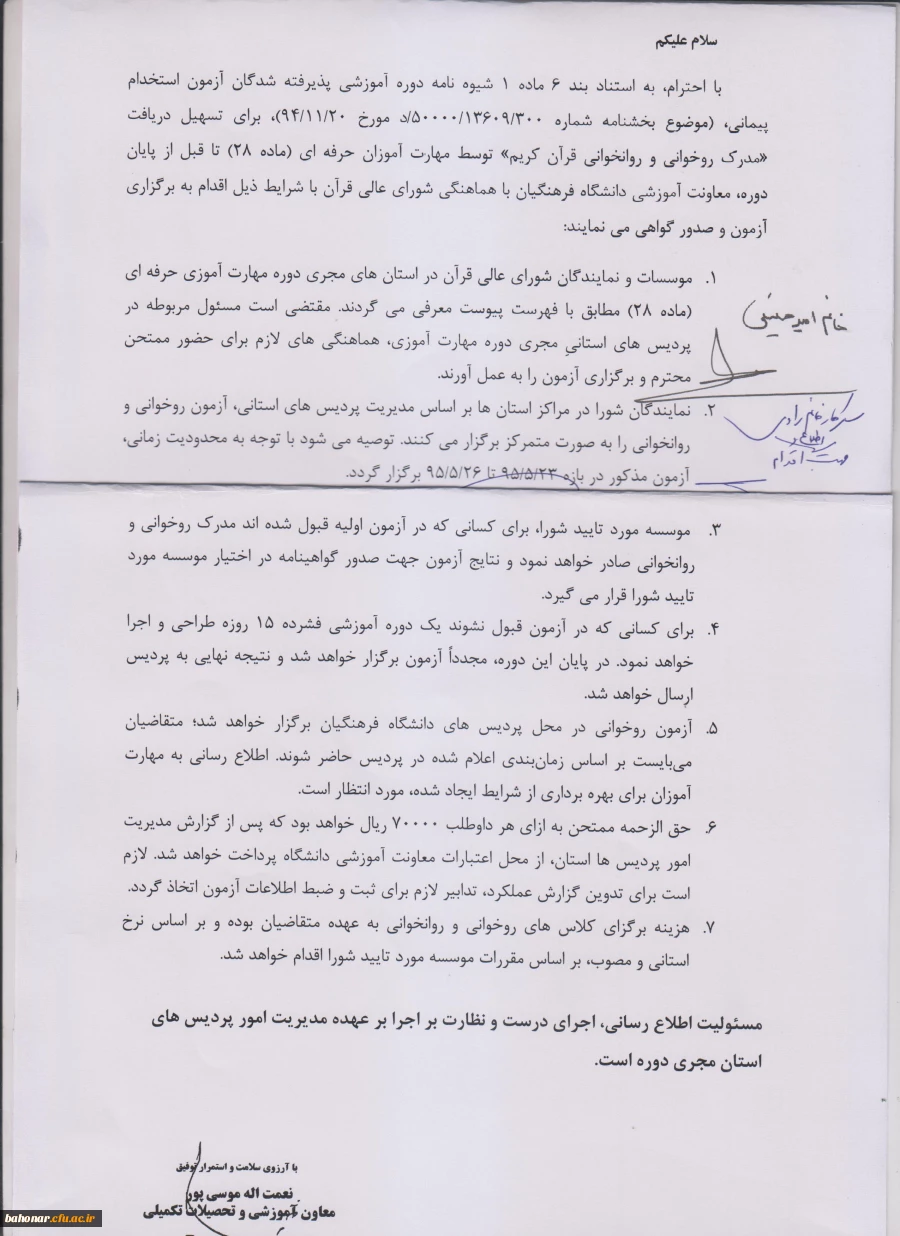 سلام علیکم
با احترام، به استناد بند ۶ ماده ۱ شیوه نامه دوره آموزشی پذیرفته شدگان آزمون استخدام
پیمانی، (موضوع بخشنامه شماره ۵۰۰۰۰/۱۳۶۰۹/۳۰۰/د مورخ ۹۴/۱۱/۲۰)، برای تسهیل دریافت
«مدرک روخوانی و روانخوانی قرآن کریم» توسط مهارت آموزان حرفه ای (ماده ۲۸) تا قبل از پایان
دوره، معاونت آموزشی دانشگاه فرهنگیان با هماهنگی شورای عالی قرآن با شرایط ذیل اقدام به برگزاری
آزمون و صدور گواهی می نمایند:
۱. موسسات و نمایندگان شورای عالی قرآن در استان های مجری دوره مهارت آموزی حرفه ای
(ماده ۲۸) مطابق با فهرست پیوست معرفی می گردند. مقتضی است مسئول مربوطه در
پردیس های استانیِ مجری دوره مهارت آموزی، هماهنگی های لازم برای حضور ممتحن
محترم و برگزاری آزمون را به عمل آورند.
خانم امیرحسینی
۲. نمایندگان شورا در مراکز استان ها بر اساس مدیریت پردیس های استانی، آزمون روخوانی و
روانخوانی را به صورت متمرکز برگزار می کنند. توصیه می شود با توجه به محدودیت زمانی،
آزمون مذکور در بازه ۹۵/۵/۲۳ تا ۹۵/۵/۲۶ برگزار گردد.
سرکار خانم رادی
اطلاع و
جهت اقدام
۳. موسسه مورد تایید شورا، برای کسانی که در آزمون اولیه قبول شده اند مدرک روخوانی و
روانخوانی صادر خواهد نمود و نتایج آزمون جهت صدور گواهینامه در اختیار موسسه مورد
تایید شورا قرار می گیرد.
۴. برای کسانی که در آزمون قبول نشوند یک دوره آموزشی فشرده ۱۵ روزه طراحی و اجرا
خواهد نمود. در پایان این دوره، مجدداً آزمون برگزار خواهد شد و نتیجه نهایی به پردیس
ارسال خواهد شد.
۵. آزمون روخوانی در محل پردیس های دانشگاه فرهنگیان برگزار خواهد شد؛ متقاضیان
می‌بایست بر اساس زمان‌بندی اعلام شده در پردیس حاضر شوند. اطلاع رسانی به مهارت
آموزان برای بهره برداری از شرایط ایجاد شده، مورد انتظار است.
۶. حق الزحمه ممتحن به ازای هر داوطلب ۷۰۰۰۰ ریال خواهد بود که پس از گزارش مدیریت
امور پردیس ها استان، از محل اعتبارات معاونت آموزشی دانشگاه پرداخت خواهد شد. لازم
است برای تدوین گزارش عملکرد، تدابیر لازم برای ثبت و ضبط اطلاعات آزمون اتخاذ گردد.
۷. هزینه برگزای کلاس های روخوانی و روانخوانی به عهده متقاضیان بوده و بر اساس نرخ
استانی و مصوب، بر اساس مقررات موسسه مورد تایید شورا اقدام خواهد شد.
مسئولیت اطلاع رسانی، اجرای درست و نظارت بر اجرا بر عهده مدیریت امور پردیس های
استان مجری دوره است.
با آرزوی سلامت و استمرار توفیق
نعمت اله موسی پور
معاون آموزشی و تحصیلات تکمیلی
bahonar.cfu.ac.ir